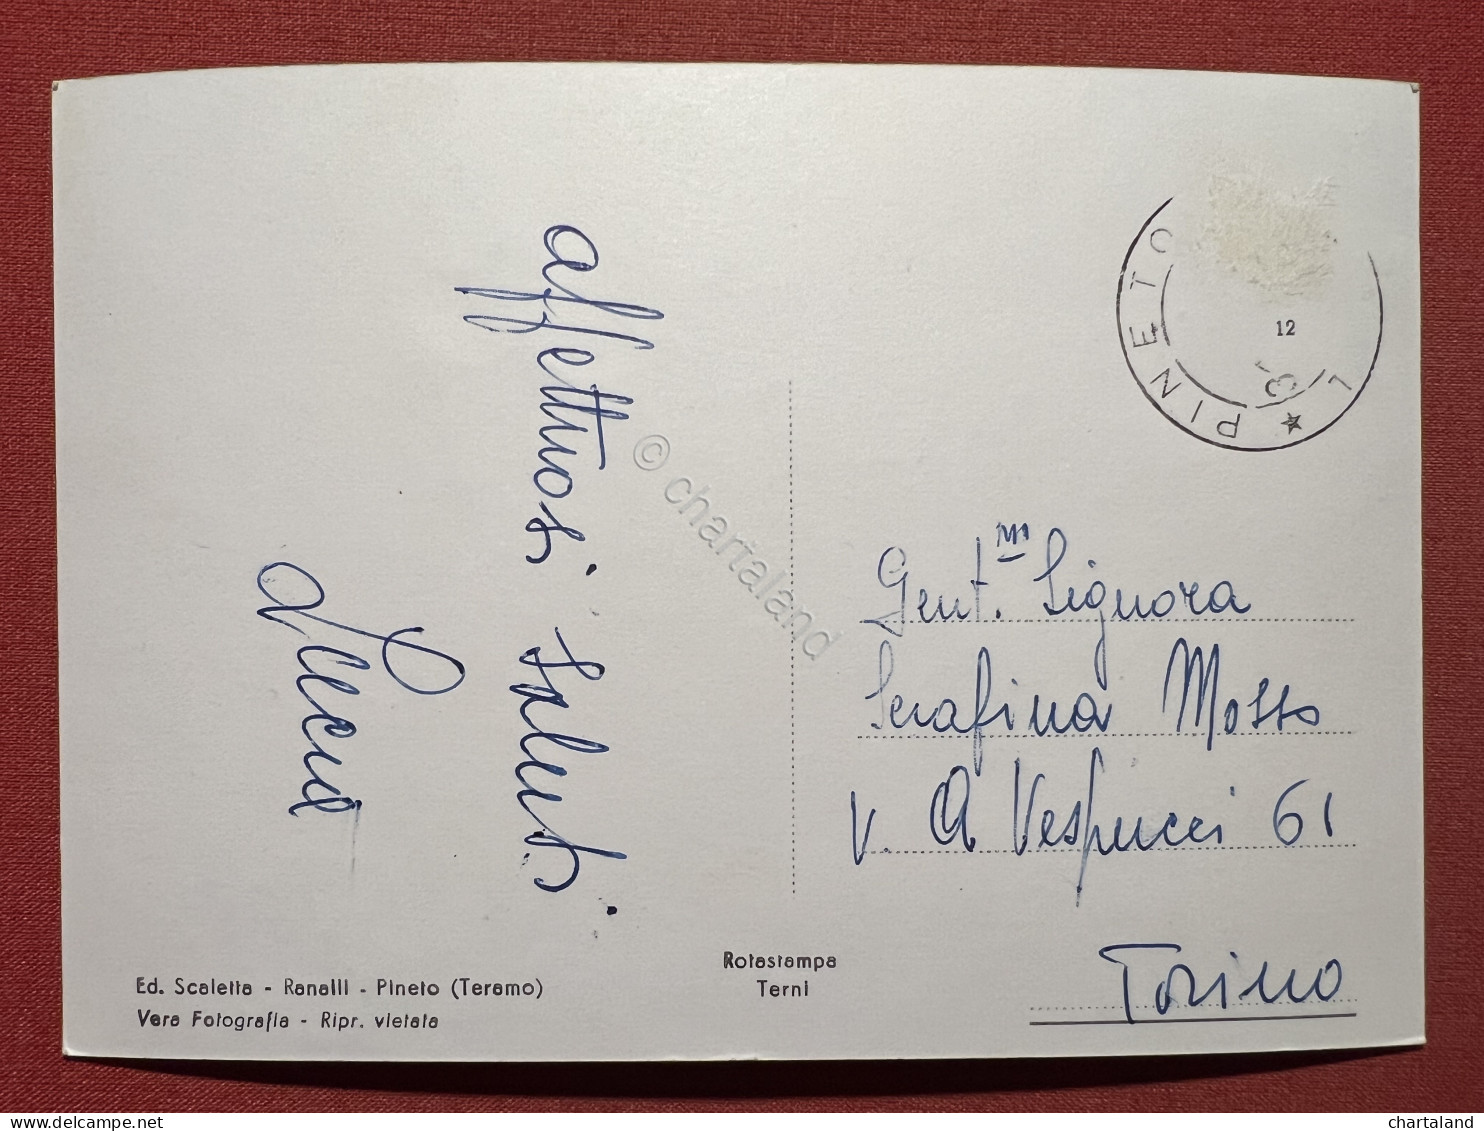 affettuosi saluti
Gent.ma Signora
Serafina Mosso
v. A Vespucci 61
Torino
PINETO
12
Rotastampa
Terni
Ed. Scaletta - Ranalli - Pineto (Teramo)
Vera Fotografia - Ripr. vietata
© chartaland
chartaland